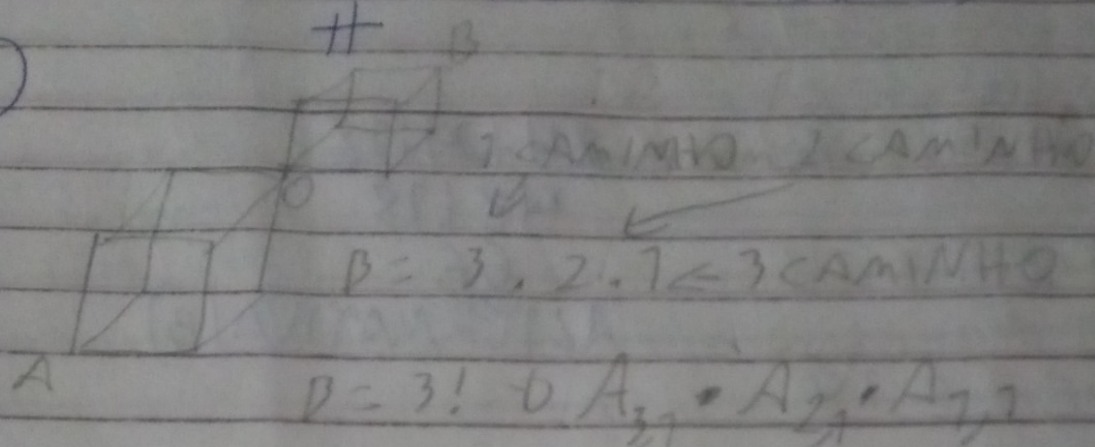 H
B
1 CAMINHO 2 CAMINHO
O
B = 3 . 2 . 1 < 3 CAMINHO
A
B = 3! A3,1 . A2,1 . A1,1